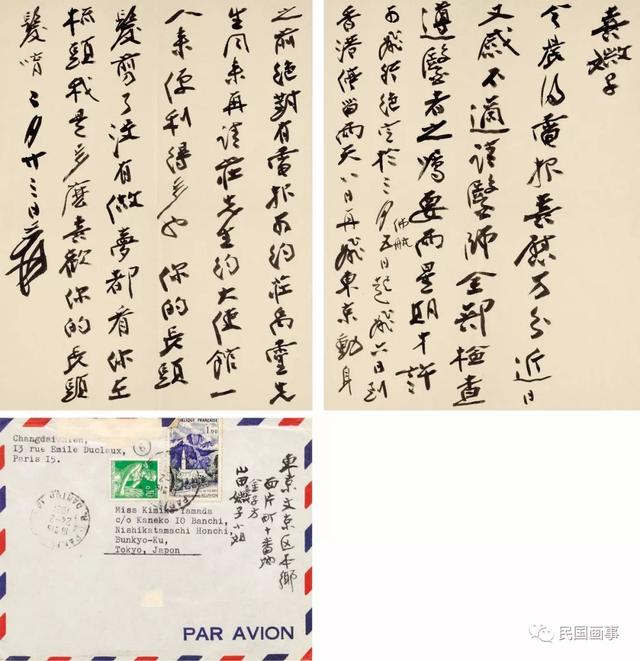 喜嫩子
今晨得電報喜慰万分近日
又感不適請醫師全部檢查
遵醫者之嘱要兩星期才許
可飛絶定於三月五日佛航起飛六日到
香港僅留兩天八日再飛東京動身
之前絶對有電報可約莊禹靈先
生同来再請莊先生約大使館一
人来便利得多也 你的長頭
髮剪了没有做夢都看你在
梳頭我是多麼喜歡你的長頭
髮唷 二月廿三日 爰
Changdaichien,
13 rue Emile Duclaux,
Paris 15.
6
REPUBLIQUE FRANÇAISE
1,00
REUNION
0,10
PARIS
Miss Kimiko Yamada
c/o Kaneko IO Banchi,
Nishikatamachi Honchi,
Bunkyo-Ku,
Tokyo, Japon
東京文京区本郷
西片町十番地
金子方
山田嫩子小姐
PAR AVION
民国画事